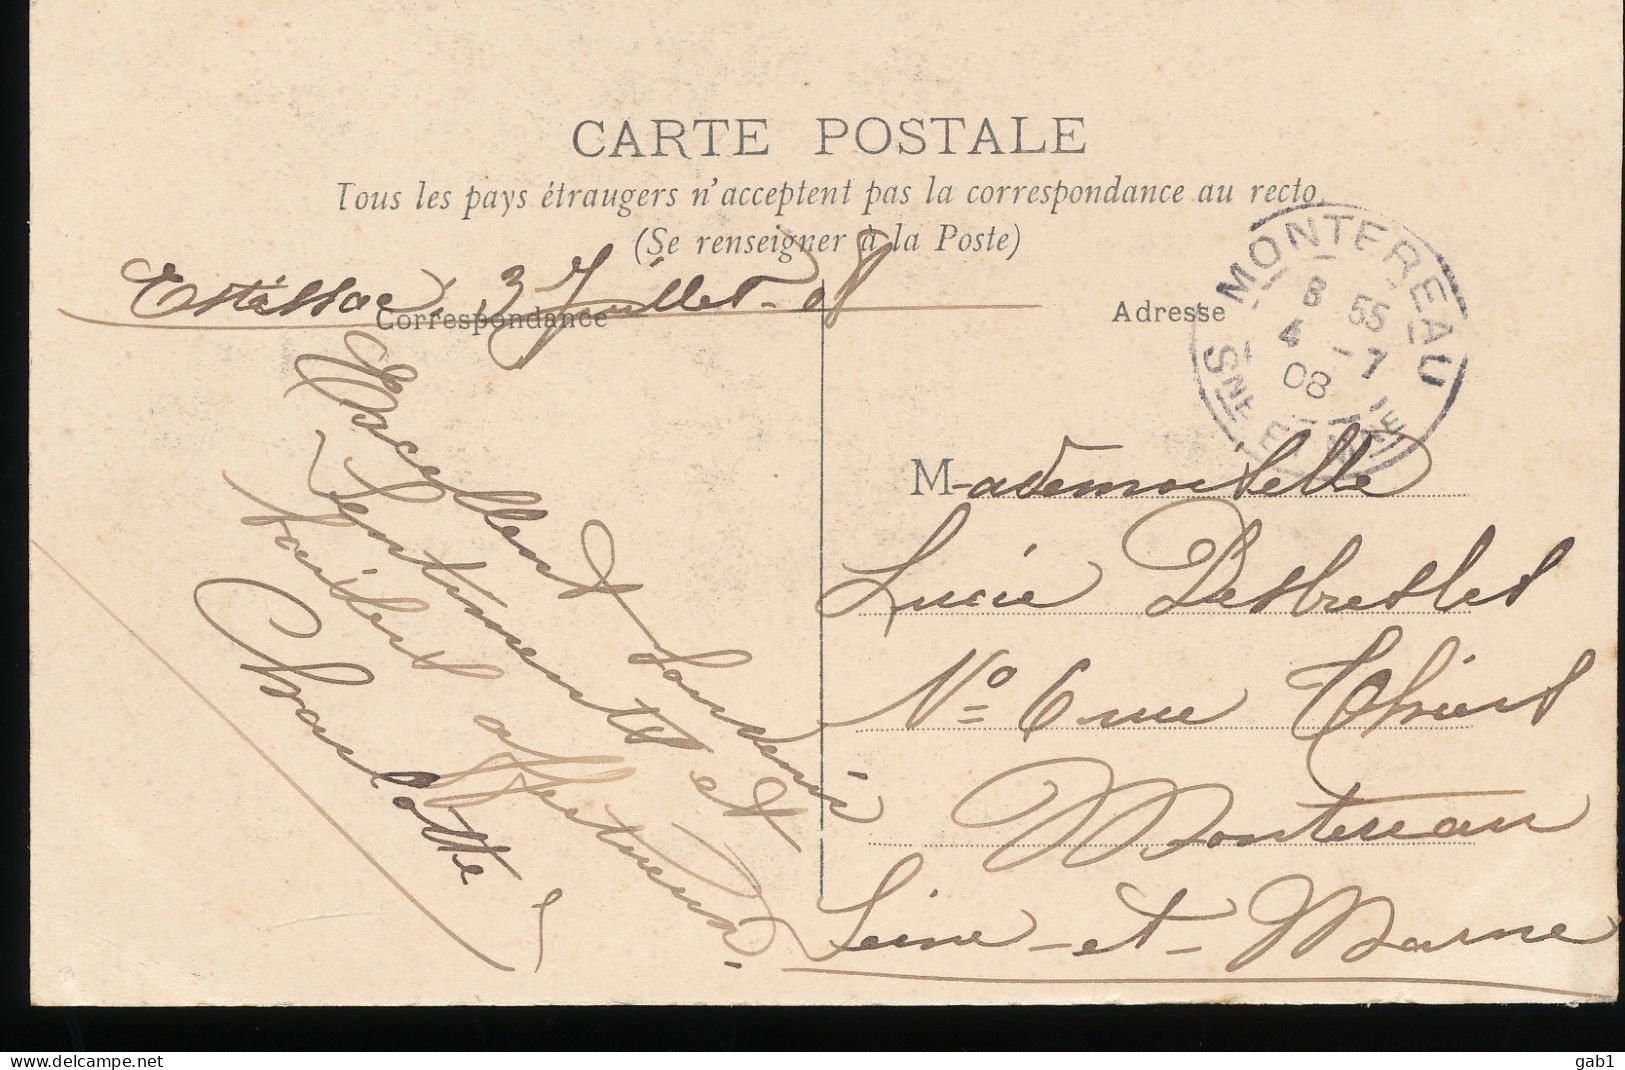 CARTE POSTALE
Tous les pays étraugers n'acceptent pas la correspondance au recto.
(Se renseigner à la Poste)
Estissac, 3 Juillet - 08
Correspondance
Adresse
MONTEREAU
8 55
4 - 7
08
SNE ET
Excellent souvenir
Sentiments et
baisers affectueux.
Charlotte
Mademoiselle
Lucie
No 6 rue Thiers
Montereau
Seine-et-Marne
www.delcampe.net
gab1